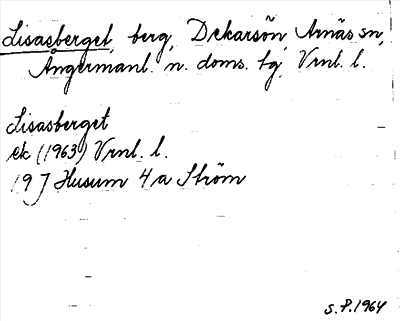 Lisasberget, berg, Dekarsön, Arnäs sn,
Ångermanl. n. doms. tg, Vrnl. l.
Lisasberget
ek (1963) Vrnl. l.
19 J Husum 4 a Ström
S.P. 1964